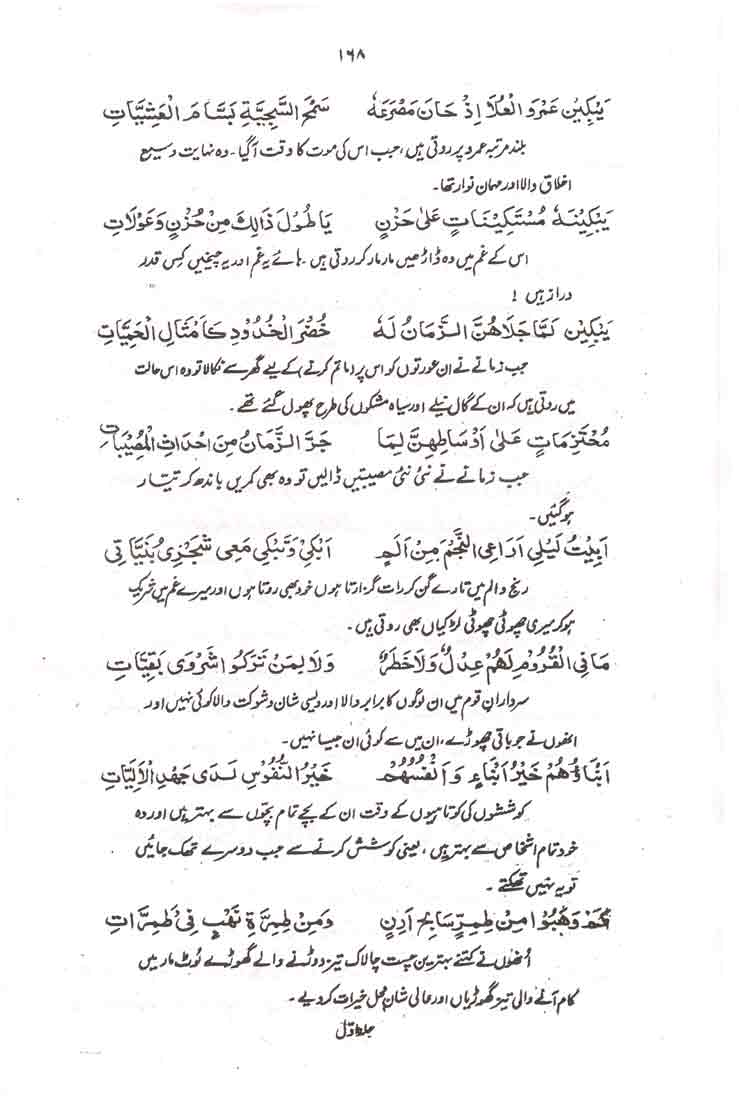 ۱۶۸
یَبْکِیْنَ عَمْرَو الْعُلَا اِذْ حَانَ مَصْرَعَهٗ سَمْحَ السَّجِیَّةِ بَسَّامَ الْعَشِیَّاتِ
بلند مرتبہ عمرو پر روتی ہیں، جب اس کی موت کا وقت آگیا۔ وہ نہایت وسیع
اخلاق والا اور مہمان نواز تھا۔
یَبْکِیْنَهٗ مُسْتَکِیْنَاتٍ عَلیٰ حَزَنٍ یَا طُوْلَ ذَالِكَ مِنْ حُزْنٍ وَعَوْلَاتِ
اس کے غم میں وہ ڈاڑھیں مار مار کر روتی ہیں۔ ہائے یہ غم اور یہ چیخیں کس قدر
دراز ہیں !
یَبْکِیْنَ لَمَّا جَلَاهُنَّ الزَّمَانُ لَهٗ خُضْرَ الْخُدُوْدِ کَاَمْثَالِ الْحَمِیَّاتِ
جب زمانے نے ان عورتوں کو اس پر (ماتم کرنے) کے لیے گھر سے نکالا تو وہ اس حالت
میں روتی ہیں کہ ان کے گال نیلے اور سیاہ مشکوں کی طرح پھول گئے تھے۔
مُحْتَزِمَاتٍ عَلیٰ اَوْسَاطِهِنَّ لِمَا جَرَّ الزَّمَانُ مِنْ اَحْدَاثِ الْمُصِیْبَاتِ
جب زمانے نے نئی نئی مصیبتیں ڈالیں تو وہ بھی کمریں باندھ کر تیار
ہوگئیں۔
اَبِیْتُ لَیْلِی اُرَاعِی النَّجْمَ مِنْ اَلَمٍ اَبْکِیْ وَتَبْکِی مَعِی شَجْوِی بُنَیَّاتِی
رنج والم میں تارے گن کر رات گزارتا ہوں خود بھی روتا ہوں اور میرے غم میں شریک
ہوکر میری چھوٹی چھوٹی لڑکیاں بھی روتی ہیں۔
مَا فِی الْقُرُوْمِ لَهُمْ عِدْلٌ وَلَا خَطَرٌ وَلَا لِمَنْ تَرَکُوْا شَرْوَی بَقِیَّاتِ
سردارانِ قوم میں ان لوگوں کا برابر والا اور ویسی شان و شوکت والا کوئی نہیں اور
انھوں نے جو باقی چھوڑے، ان میں سے کوئی ان جیسا نہیں۔
اَبْنَاؤُهُمْ خَیْرُ اَبْنَاءٍ وَاَنْفُسُهُمْ خَیْرُ النُّفُوْسِ لَدَی جَهْدِ الْاَلِیَّاتِ
کوششوں کی کوتاہیوں کے وقت ان کے بچے تمام بچوں سے بہتر ہیں اور وہ
خود تمام اشخاص سے بہتر ہیں، یعنی کوشش کرنے سے جب دوسرے تھک جائیں
تو یہ نہیں تھکتے۔
کَمْ وَهَبُوْا مِنْ طِمِرٍّ سَابِحٍ اَرِنٍ وَمِنْ طِمِرَّةٍ نَهْبٍ فِی طِمِرَّاتِ
اُنھوں نے کتنے بہترین چست چالاک تیز دوڑنے والے گھوڑے لُوٹ مار میں
کام آنے والی تیز گھوڑیاں اور عالی شان محل خیرات کر دیے۔
جلد اوّل